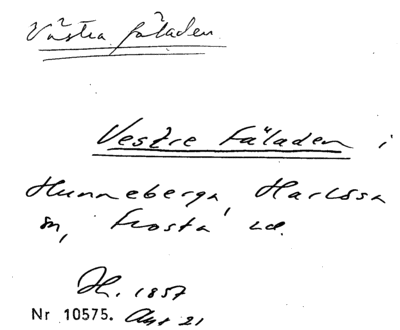 Västra fäladen
Vestre Fäladen i
Hunneberga, Harlössa
sn, Frosta hd.
H. 1857
Nr 10575. Akt 21